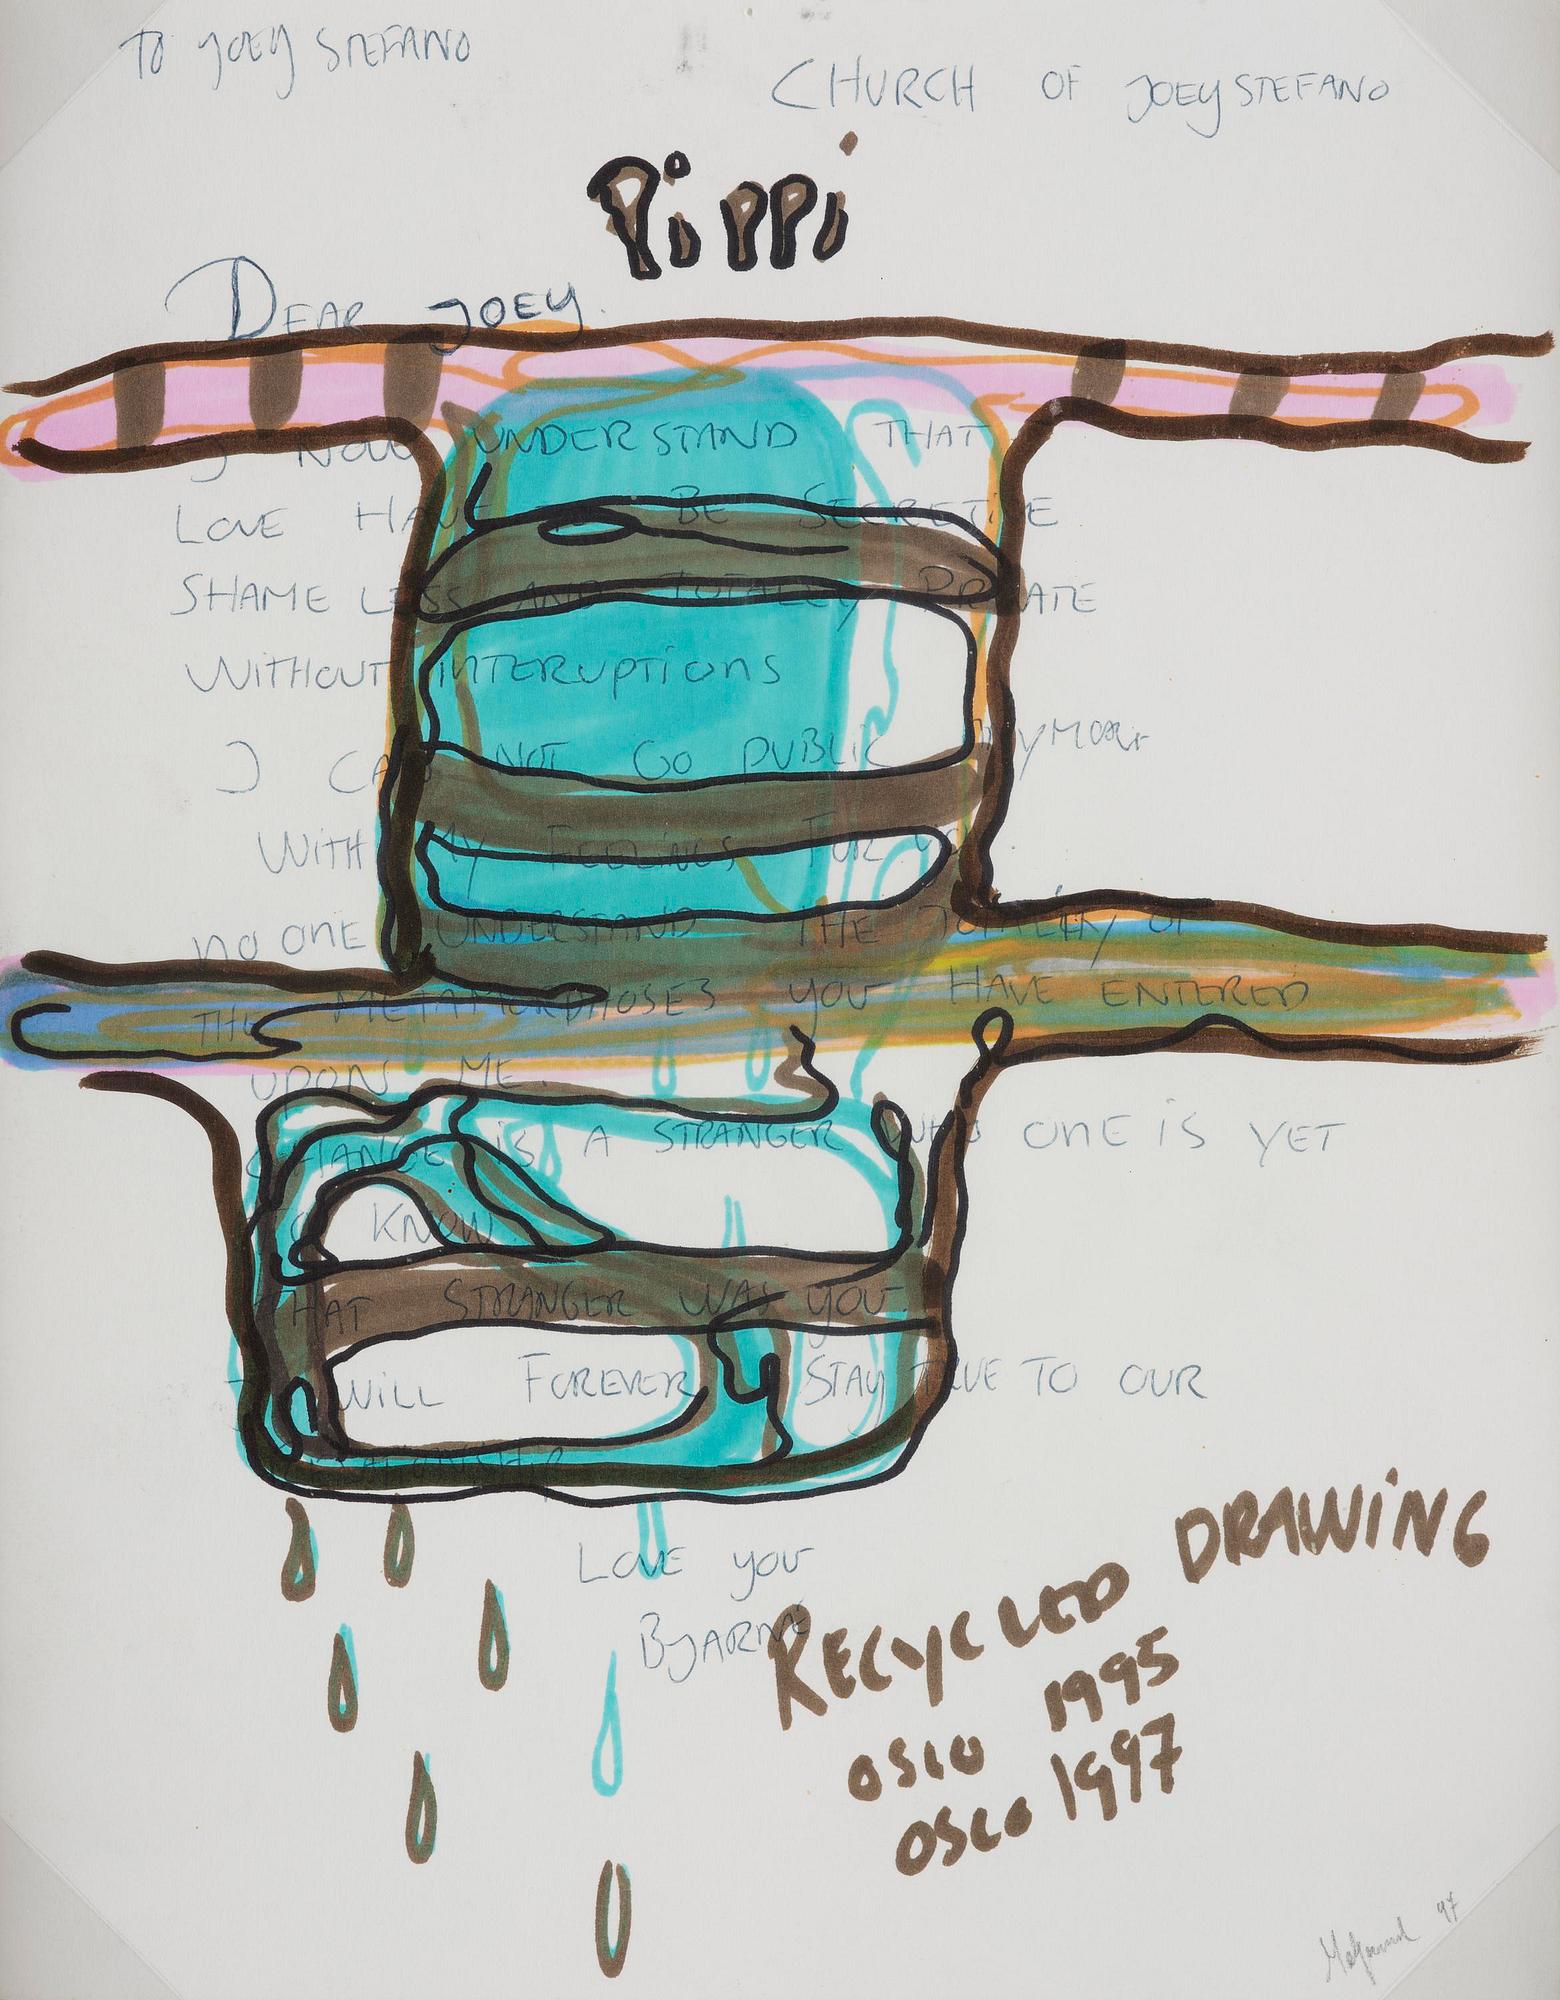 TO JOEY STEFANO
CHURCH OF JOEY STEFANO
Pippi
DEAR JOEY.
I NOW UNDERSTAND THAT
LOVE HAVE BE SECRETIVE
SHAME LESS AND TOTALLY PRIVATE
WITHOUT INTERUPTIONS
I CAN NOT GO PUBLIC ANYMORE
WITH MY FEELINGS FOR YOU
no one UNDERSTAND THE TOTALITY OF
THE METAMORPHOSES YOU HAVE ENTERED
UPON ME.
CHANGE IS A STRANGER WHO ONE IS YET
TO KNOW.
THAT STRANGER WAS YOU.
I WILL FOREVER STAY TRUE TO OUR
RELATIONSHIP
LOVE YOU
BJARNE
RECYCLED DRAWING
OSLO 1995
OSLO 1997
Melgaard 97